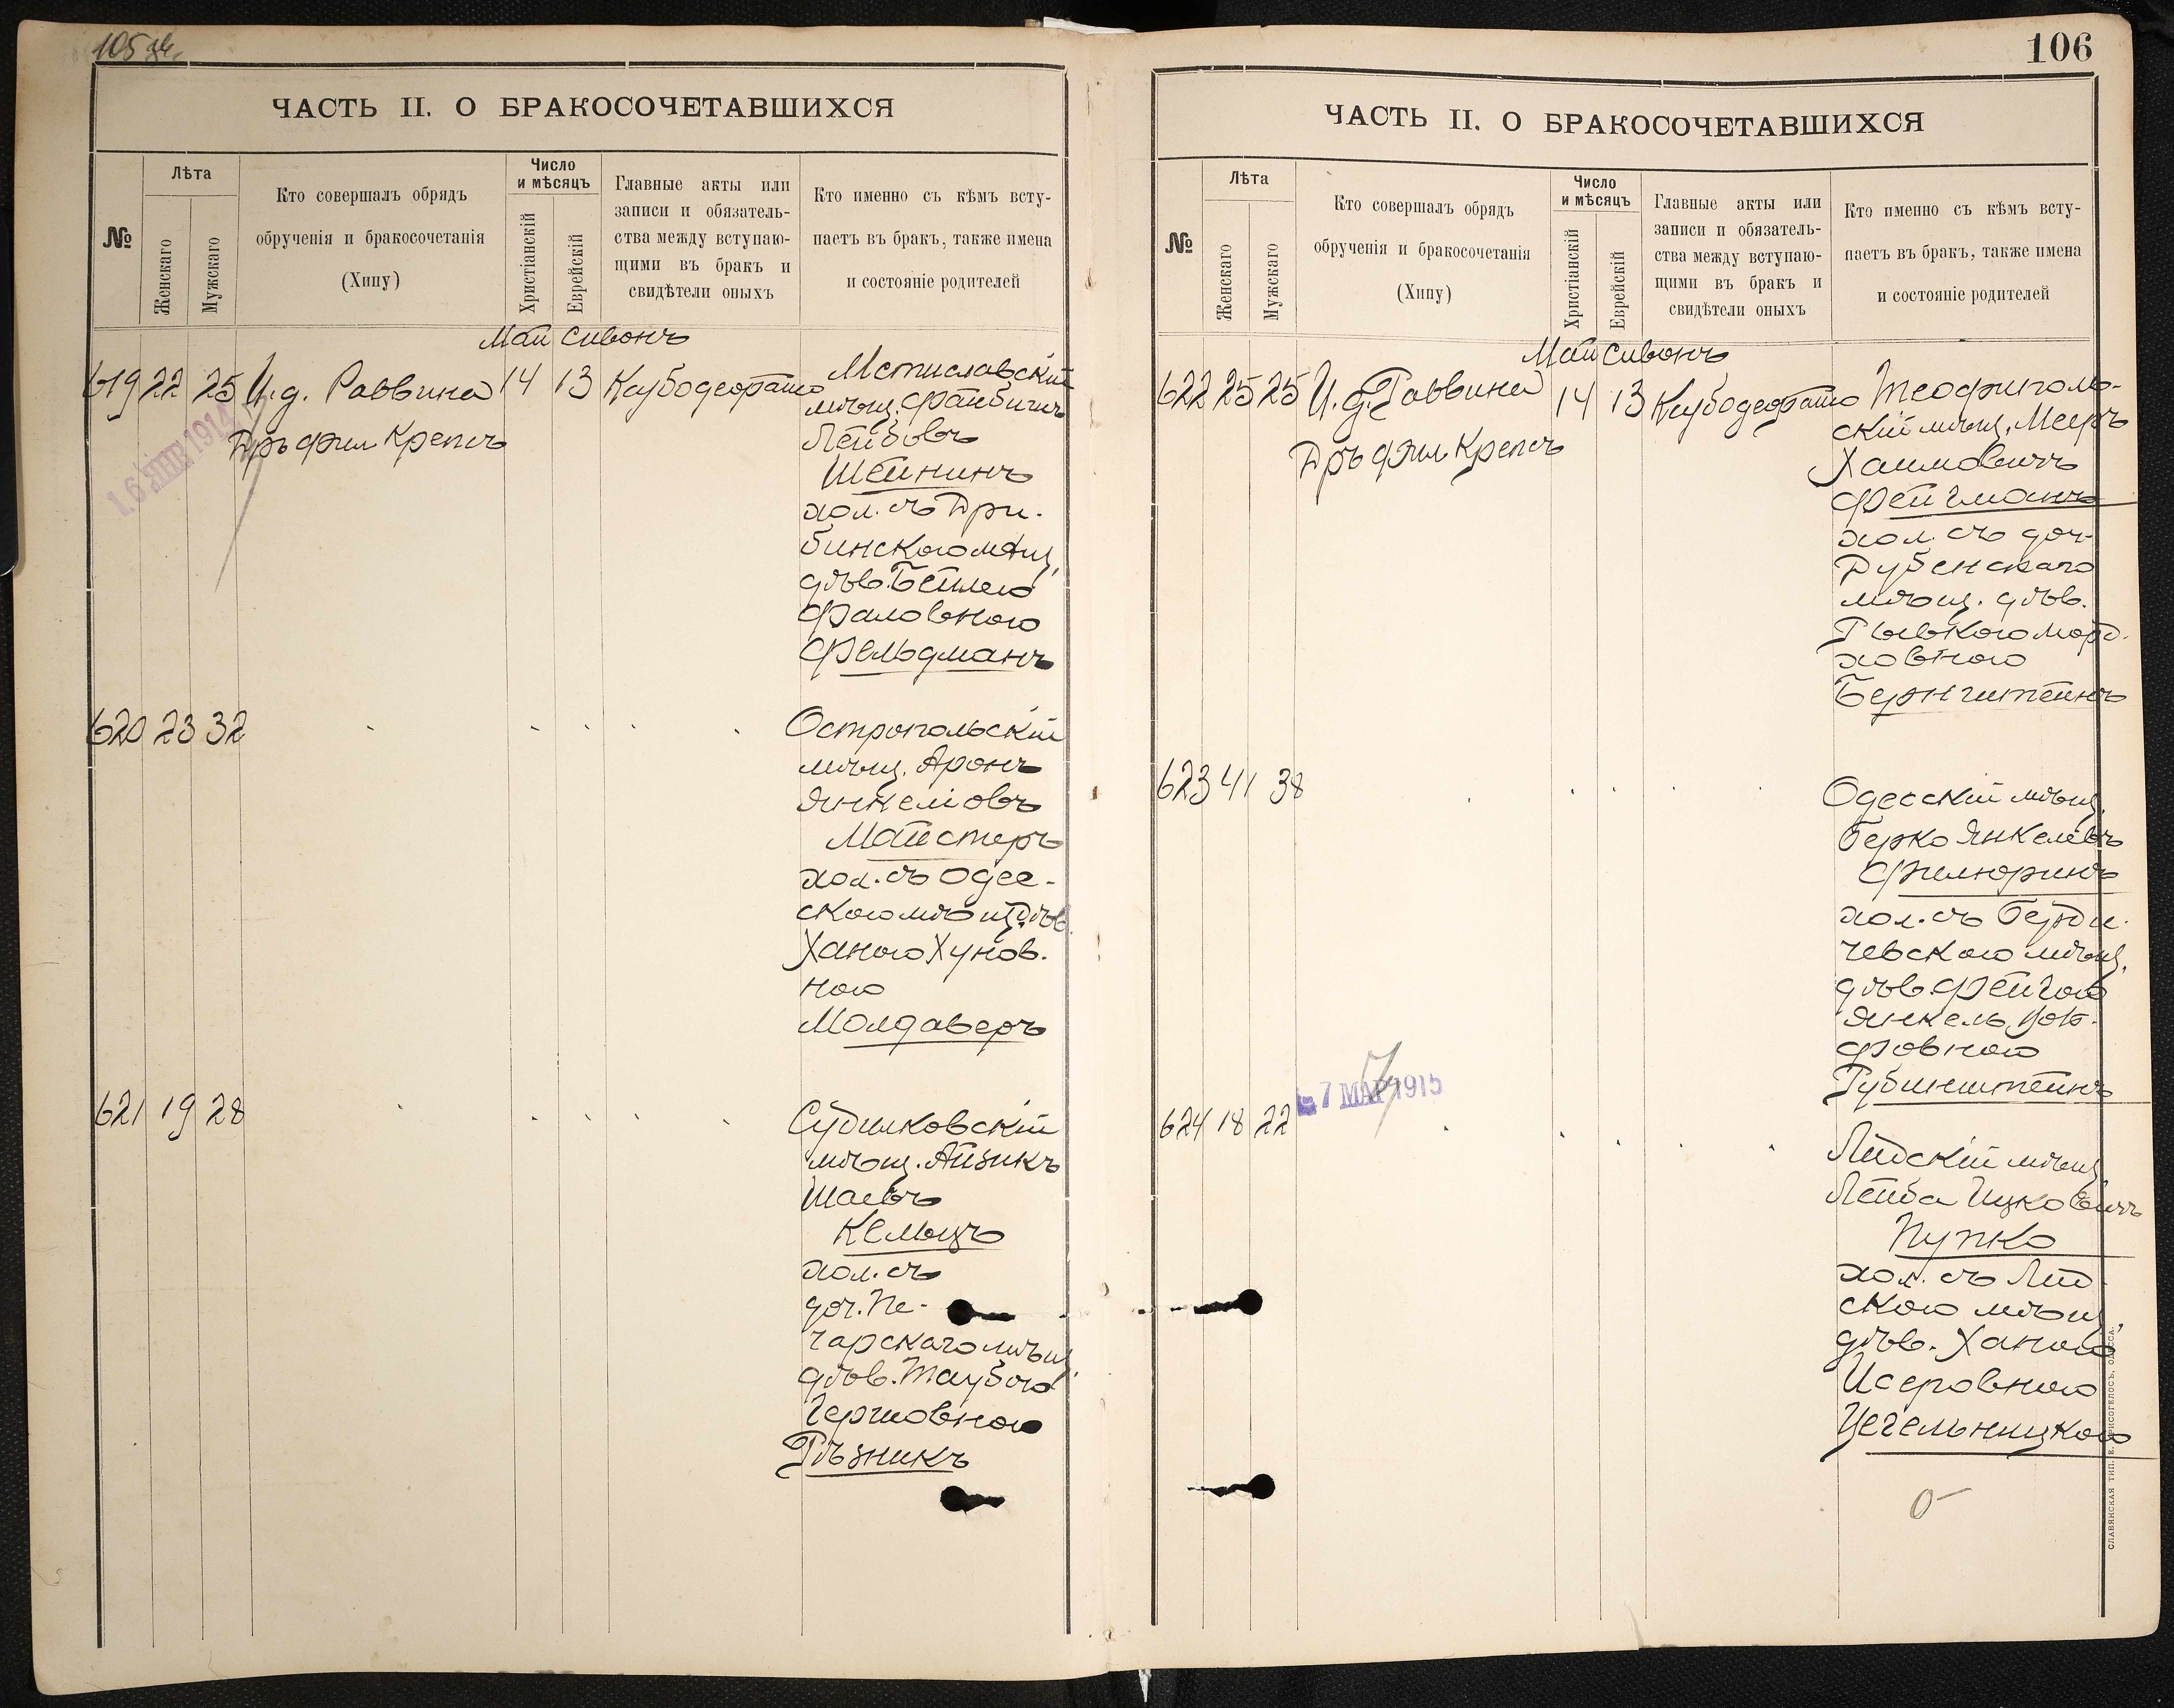 105 об.
ЧАСТЬ II. О БРАКОСОЧЕТАВШИХСЯ
№
Лѣта
Женскаго
Мужскаго
Кто совершалъ обрядъ
обрученія и бракосочетанія
(Хипу)
Число
и мѣсяцъ
Христіанскій
Еврейскій
Главные акты или
записи и обязатель-
ства между вступаю-
щими въ бракъ и
свидѣтели оныхъ
Кто именно съ кѣмъ всту-
паетъ въ бракъ, также имена
и состояніе родителей
Май Сивонъ
619 22 25 И.д. Раввина 14 13
Дръ фил Крепсъ
16 ЯНВ 1914
Мстиславскій
мѣщ. Файбишъ
Лейбовъ
Шейнинъ
хол. съ Дри-
бинскою мѣщ.
дѣв. Бейлею
Фаловною
Фельдманъ
620 23 32
Остропольскій
мѣщ. Аронъ
Янкелiовъ
Майстеръ
хол. съ Одес-
скою мѣщ. дѣв.
Ханою Хунов-
ною
Молдаверъ
621 19 28
Судилковскій
мѣщ. Айзикъ
Шаевъ
Кельцъ
хол. съ
доч. Пе-
чарскаго мѣщ.
дѣв. Таубою
Гершовною
Рѣзникъ
106
ЧАСТЬ II. О БРАКОСОЧЕТАВШИХСЯ
№
Лѣта
Женскаго
Мужскаго
Кто совершалъ обрядъ
обрученія и бракосочетанія
(Хипу)
Число
и мѣсяцъ
Христіанскій
Еврейскій
Главные акты или
записи и обязатель-
ства между вступаю-
щими въ бракъ и
свидѣтели оныхъ
Кто именно съ кѣмъ всту-
паетъ въ бракъ, также имена
и состояніе родителей
Май Сивонъ
622 25 25 И.д. Раввина 14 13
Дръ фил Крепсъ
Теофиполь-
скій мѣщ. Мееръ
Хаимовичъ
Фейгманъ
хол. съ доч.
Дубенскаго
мѣщ. дѣв.
Рывкою Морд-
ховною
Бернштейнъ
623 41 38
Одесскій мѣщ.
Берко Янкелевъ
Филюринъ
хол. съ Берди-
чевскою мѣщ.
дѣв. Фейгою
Янкель
фовною
Рубинштейнъ
7 МАР 1915
624 18 22
Лидскій мѣщ.
Лейба Ицковичъ
Пупко
хол. съ Лид-
скою мѣщ.
дѣв. Ханою
Исеровною
Цегельницкою
СЛАВЯНСКАЯ ТИП. Е. ХРИСОГЕЛОСЪ. ОДЕССА.